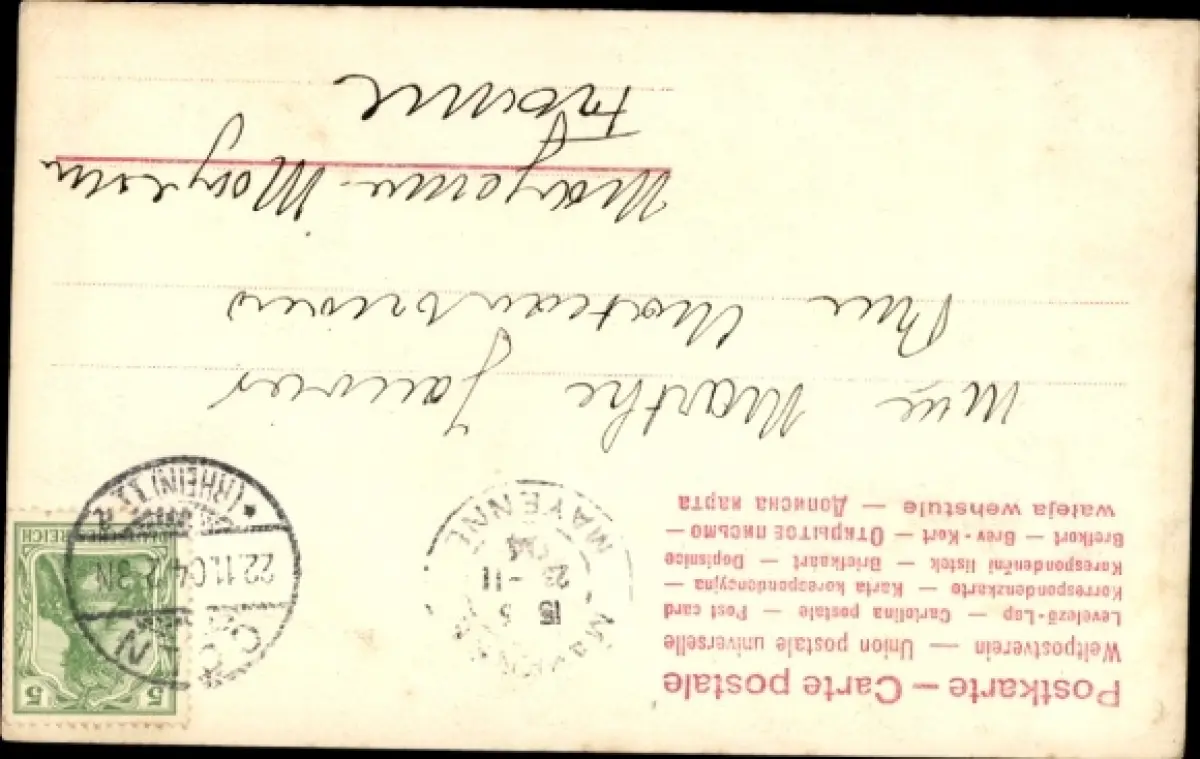 Postkarte — Carte postale
Weltpostverein — Union postale universelle
Levelező-Lap — Cartolina postale — Post card
Korrespondenzkarte — Karta korespondencyjna —
Korespondenční listek — Briefkaart — Dopisnice
Bretkort — Brev-Kort — Открытое письмо —
wateja wehstule — Дописна карта
5 5
DEUTSCHES REICH
CÖLN
22.11.04. 2-3N
* (RHEIN) 11. R.
MAYENNE
15 5
23 - 11
04
MAYENNE
Mlle Marthe Janvier
Rue
Mayenne Mayenne
France